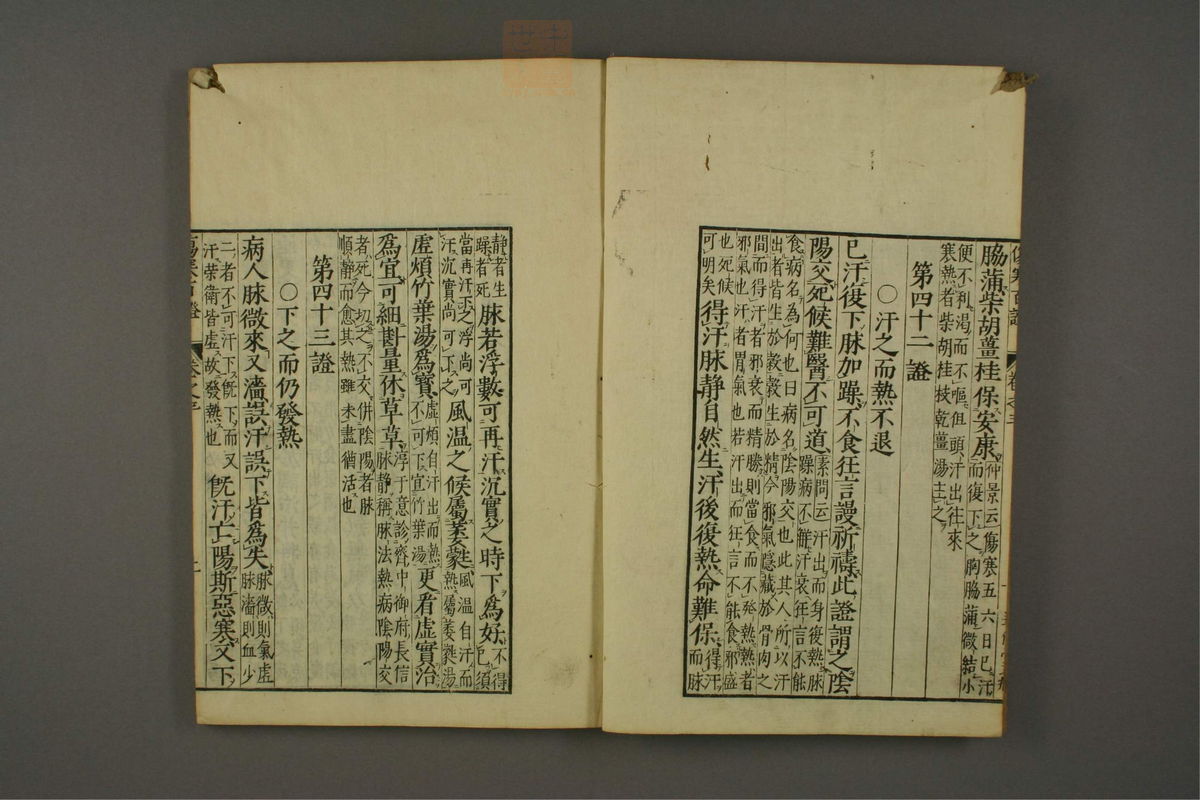 脇滿柴胡薑桂保安康仲景云傷寒五六日已汗
而復下之胸脇滿微結小
便不利渴而不嘔但頭汗出往來
寒熱者柴胡桂枝乾薑湯主之
第四十二證
○汗之而熱不退
已汗復下脉加躁不食狂言謾祈禱此證謂之陰
陽交死候難醫不可道素問云汗出而身復熱脉
躁病不觧汗衰狂言不能
食病名為何也曰病名陰陽交也此其人所以汗
出者皆生於穀穀生於精今邪氣隱藏於骨肉之
間而得汗者邪衰而精勝則當食而不發熱熱者
邪氣也汗者胃氣也若汗出而狂言不能食邪盛
也死候
可明矣得汗脉静自然生汗後復熱命難保得汗
而脉
静者生
躁者死脉若浮數可再汗沉實之時下為好不得
已須
當再汗下之浮尚可
汗沉實尚可下之風温之候屬萎蕤風温自汗而
熱屬萎蕤湯
虛煩竹葉湯為寳虛煩自汗出而熱
不可下宜竹葉湯更看虛實治
為宜可細斟量休草草淳于意診齊中御府長信
脉静稱脉法熱病陰陽交
者死今切之不交併陰陽者脉
順静而愈其熱雖未盡猶活也
第四十三證
○下之而仍發熱
病人脉微來又濇誤汗誤下皆為失脉微則氣虛
脉濇則血少
二者不可汗下旣下而又
汗榮衛皆虛故發熱也旣汗亡陽斯惡寒又下